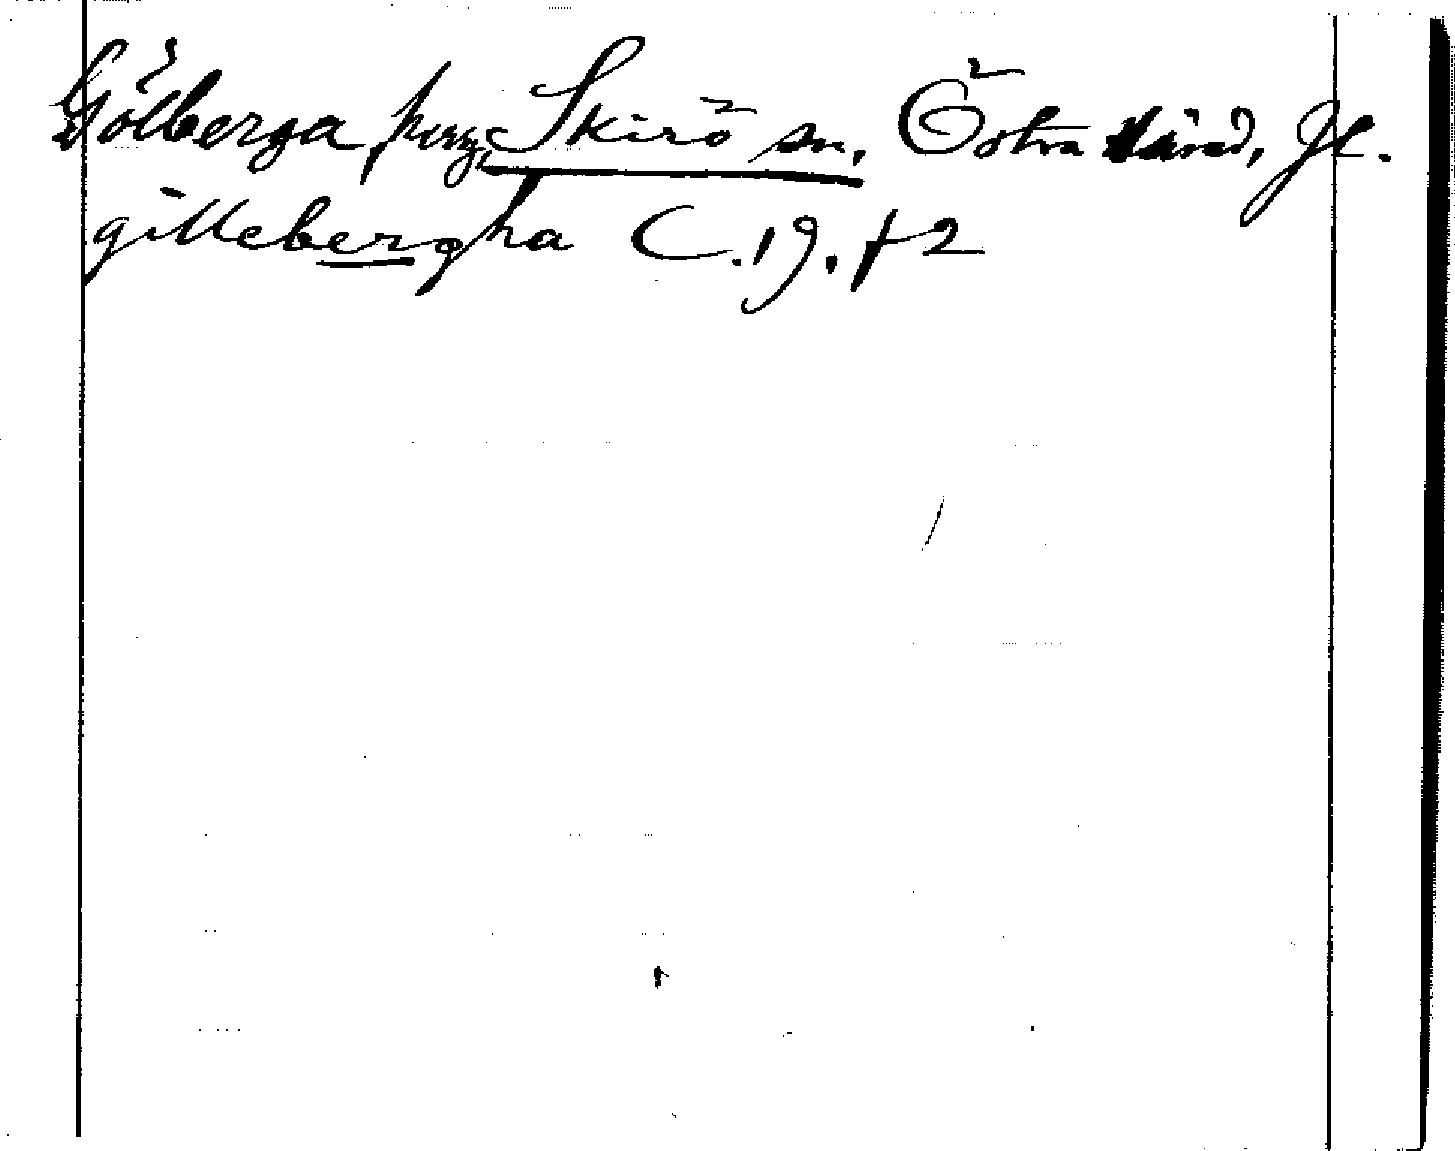 Gölberga, Skirö sn. Östra härad, Jl.
gillebergha C. 19. f 2